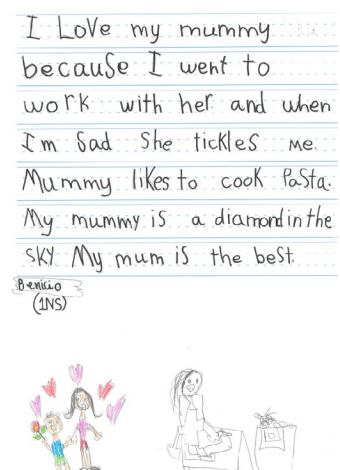 I Love my mummy
because I went to
work with her and when
I'm Sad She tickles me.
Mummy likes to cook Pasta.
My mummy is a diamond in the
SKY. My mum is the best.
Benicio
(1NS)